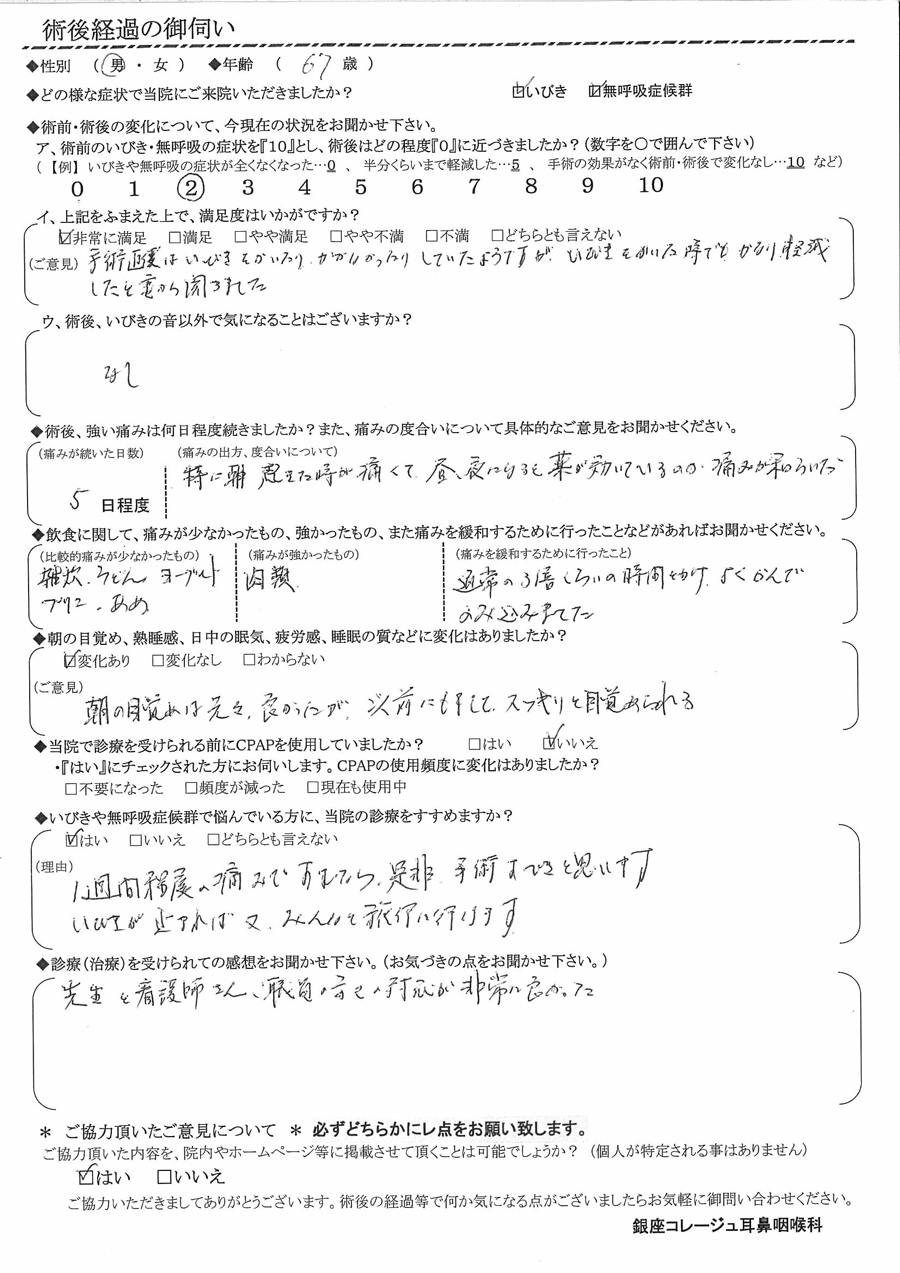 術後経過の御伺い
◆性別 （ 男 ・ 女 ） ◆年齢 （ 67 歳 ）
◆どの様な症状で当院にご来院いただきましたか？ ☑いびき ☑無呼吸症候群
◆術前・術後の変化について、今現在の状況をお聞かせ下さい。
ア、術前のいびき・無呼吸の症状を『10』とし、術後はどの程度『0』に近づきましたか？（数字を〇で囲んで下さい）
（ 【例】 いびきや無呼吸の症状が全くなくなった…0 、 半分くらいまで軽減した…5 、 手術の効果がなく術前・術後で変化なし…10 など）
0 1 ② 3 4 5 6 7 8 9 10
イ、上記をふまえた上で、満足度はいかがですか？
☑非常に満足 □満足 □やや満足 □やや不満 □不満 □どちらとも言えない
（ご意見） 手術直後はいびきをかいたり、かかなかったりしていたようですが、いびきをかいた時でも かなり軽減
したと妻から聞きました
ウ、術後、いびきの音以外で気になることはございますか？
なし
◆術後、強い痛みは何日程度続きましたか？また、痛みの度合いについて具体的なご意見をお聞かせください。
（痛みが続いた日数） （痛みの出方、度合いについて）
特に朝 起きた時が痛くて、昼、夜になると薬が効いているのか 痛みが和らいだ
5 日程度
◆飲食に関して、痛みが少なかったもの、強かったもの、また痛みを緩和するために行ったことなどがあればお聞かせください。
（比較的痛みが少なかったもの） （痛みが強かったもの） （痛みを緩和するために行ったこと）
雑炊、うどん、ヨーグルト 肉類 通常の3倍くらいの時間をかけ、よくかんで
プリン、あめ のみ込みました
◆朝の目覚め、熟睡感、日中の眠気、疲労感、睡眠の質などに変化はありましたか？
☑変化あり □変化なし □わからない
（ご意見）
朝の目覚めは元々、良かったが、以前にもまして、スッキリと目覚められる
◆当院で診療を受けられる前にCPAPを使用していましたか？ □はい ☑いいえ
・『はい』にチェックされた方にお伺いします。CPAPの使用頻度に変化はありましたか？
□不要になった □頻度が減った □現在も使用中
◆いびきや無呼吸症候群で悩んでいる方に、当院の診療をすすめますか？
☑はい □いいえ □どちらとも言えない
（理由）
1週間程度の痛みですむなら、是非 手術すべきと思います
いびきが止まれば 又、みんなと旅行に行けます
◆診療（治療）を受けられての感想をお聞かせ下さい。（お気づきの点をお聞かせ下さい。）
先生と看護師さん、職員の方々の対応が非常に良かった
＊ ご協力頂いたご意見について ＊ 必ずどちらかにレ点をお願い致します。
ご協力頂いた内容を、院内やホームページ等に掲載させて頂くことは可能でしょうか？ （個人が特定される事はありません）
☑はい □いいえ
ご協力いただきましてありがとうございます。術後の経過等で何か気になる点がございましたらお気軽に御問い合わせください。
銀座コレージュ耳鼻咽喉科